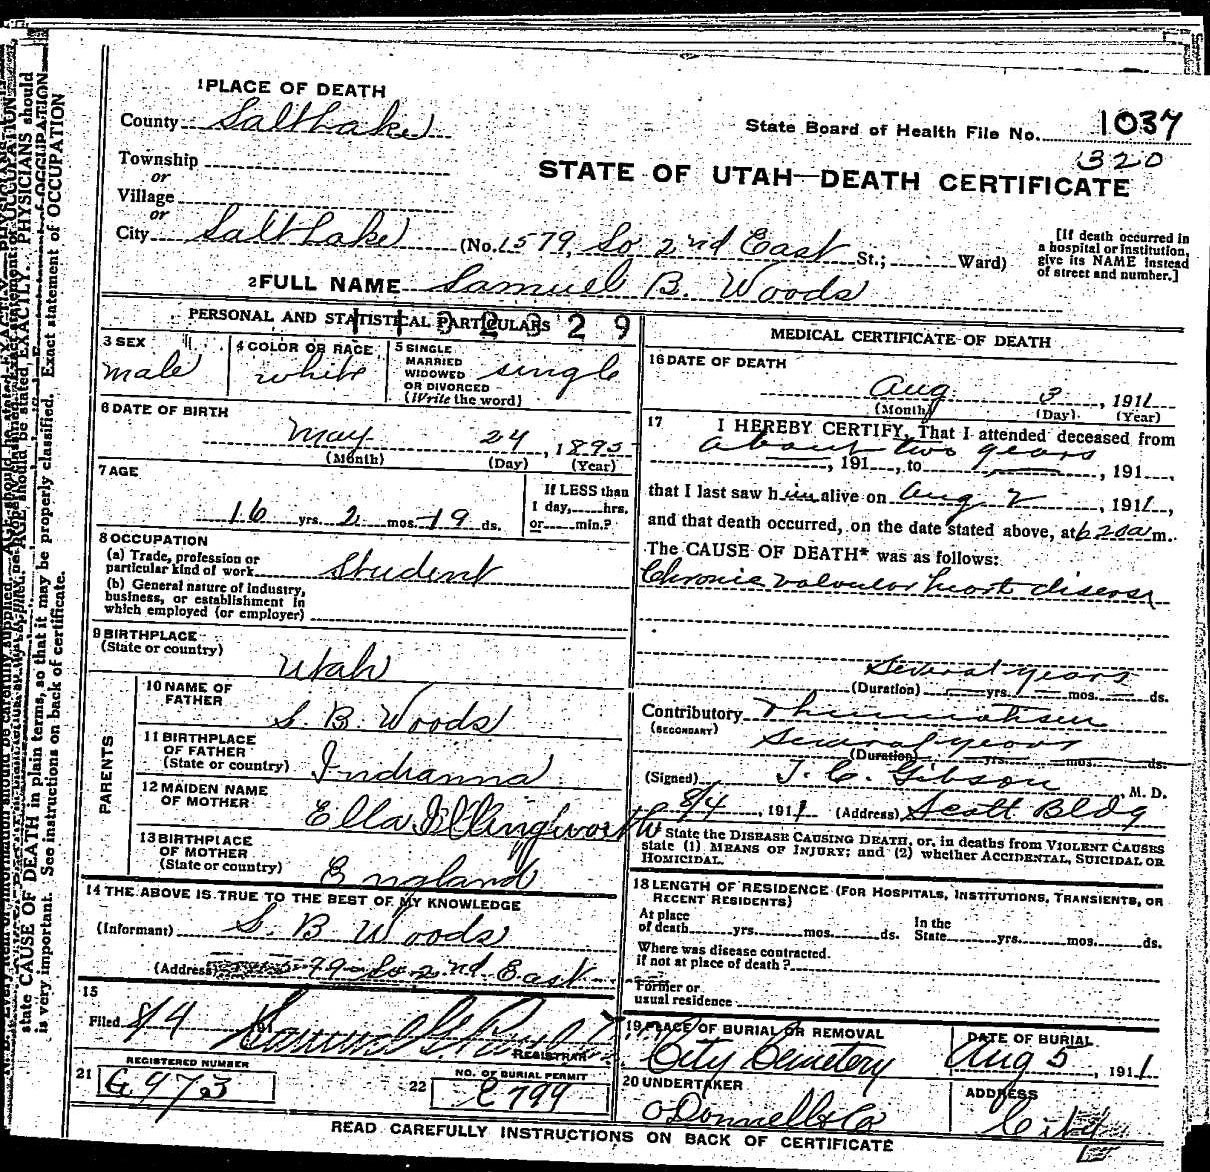 1 PLACE OF DEATH
County Salt Lake
State Board of Health File No. 1037
320
Township
or
Village
or
STATE OF UTAH—DEATH CERTIFICATE
City Salt Lake (No. 1579, So 2nd East St.; Ward)
[If death occurred in a hospital or institution, give its NAME instead of street and number.]
2 FULL NAME Samuel B. Woods
PERSONAL AND STATISTICAL PARTICULARS
3 SEX
male
4 COLOR OR RACE
white
5 SINGLE
MARRIED
WIDOWED
OR DIVORCED
(Write the word)
single
6 DATE OF BIRTH
May 24, 1895
(Month) (Day) (Year)
7 AGE
16 yrs. 2 mos. 19 ds.
If LESS than
1 day, hrs.
or min.?
8 OCCUPATION
(a) Trade, profession or
particular kind of work Student
(b) General nature of industry,
business, or establishment in
which employed (or employer)
9 BIRTHPLACE
(State or country)
Utah
PARENTS
10 NAME OF
FATHER
S. B. Woods
11 BIRTHPLACE
OF FATHER
(State or country) Indianna
12 MAIDEN NAME
OF MOTHER
Ella Illingworth
13 BIRTHPLACE
OF MOTHER
(State or country) England
14 THE ABOVE IS TRUE TO THE BEST OF MY KNOWLEDGE
(Informant) S. B Woods
(Address) 1579 So 2nd East
15
Filed 8/4 191
REGISTRAR
REGISTERED NUMBER
21 G 973
NO. OF BURIAL PERMIT
22 C 799
MEDICAL CERTIFICATE OF DEATH
16 DATE OF DEATH
Aug 3, 1911
(Month) (Day) (Year)
17 I HEREBY CERTIFY, That I attended deceased from
about two years
, 191 , to , 191 ,
that I last saw him alive on Aug 2, 1911,
and that death occurred, on the date stated above, at 6 20 a m.
The CAUSE OF DEATH* was as follows:
Chronic valvular heart disease
Several years
(Duration) yrs. mos. ds.
Contributory Rheumatism
(SECONDARY)
Several years
(Duration) yrs. mos. ds.
(Signed) J. C. Gibson, M. D.
8/4, 1911 (Address) Scott Bldg
* State the DISEASE CAUSING DEATH, or, in deaths from VIOLENT CAUSES
state (1) MEANS OF INJURY; and (2) whether ACCIDENTAL, SUICIDAL OR
HOMICIDAL.
18 LENGTH OF RESIDENCE (FOR HOSPITALS, INSTITUTIONS, TRANSIENTS, OR
RECENT RESIDENTS)
At place
of death yrs. mos. ds.
In the
State yrs. mos. ds.
Where was disease contracted.
if not at place of death?
Former or
usual residence
19 PLACE OF BURIAL OR REMOVAL
City Cemetery
DATE OF BURIAL
Aug 5, 1911
20 UNDERTAKER
O'Donnell & Co
ADDRESS
City
READ CAREFULLY INSTRUCTIONS ON BACK OF CERTIFICATE
state CAUSE OF DEATH in plain terms, so that it may be properly classified. Exact statement of OCCUPATION
is very important. See instructions on back of certificate.